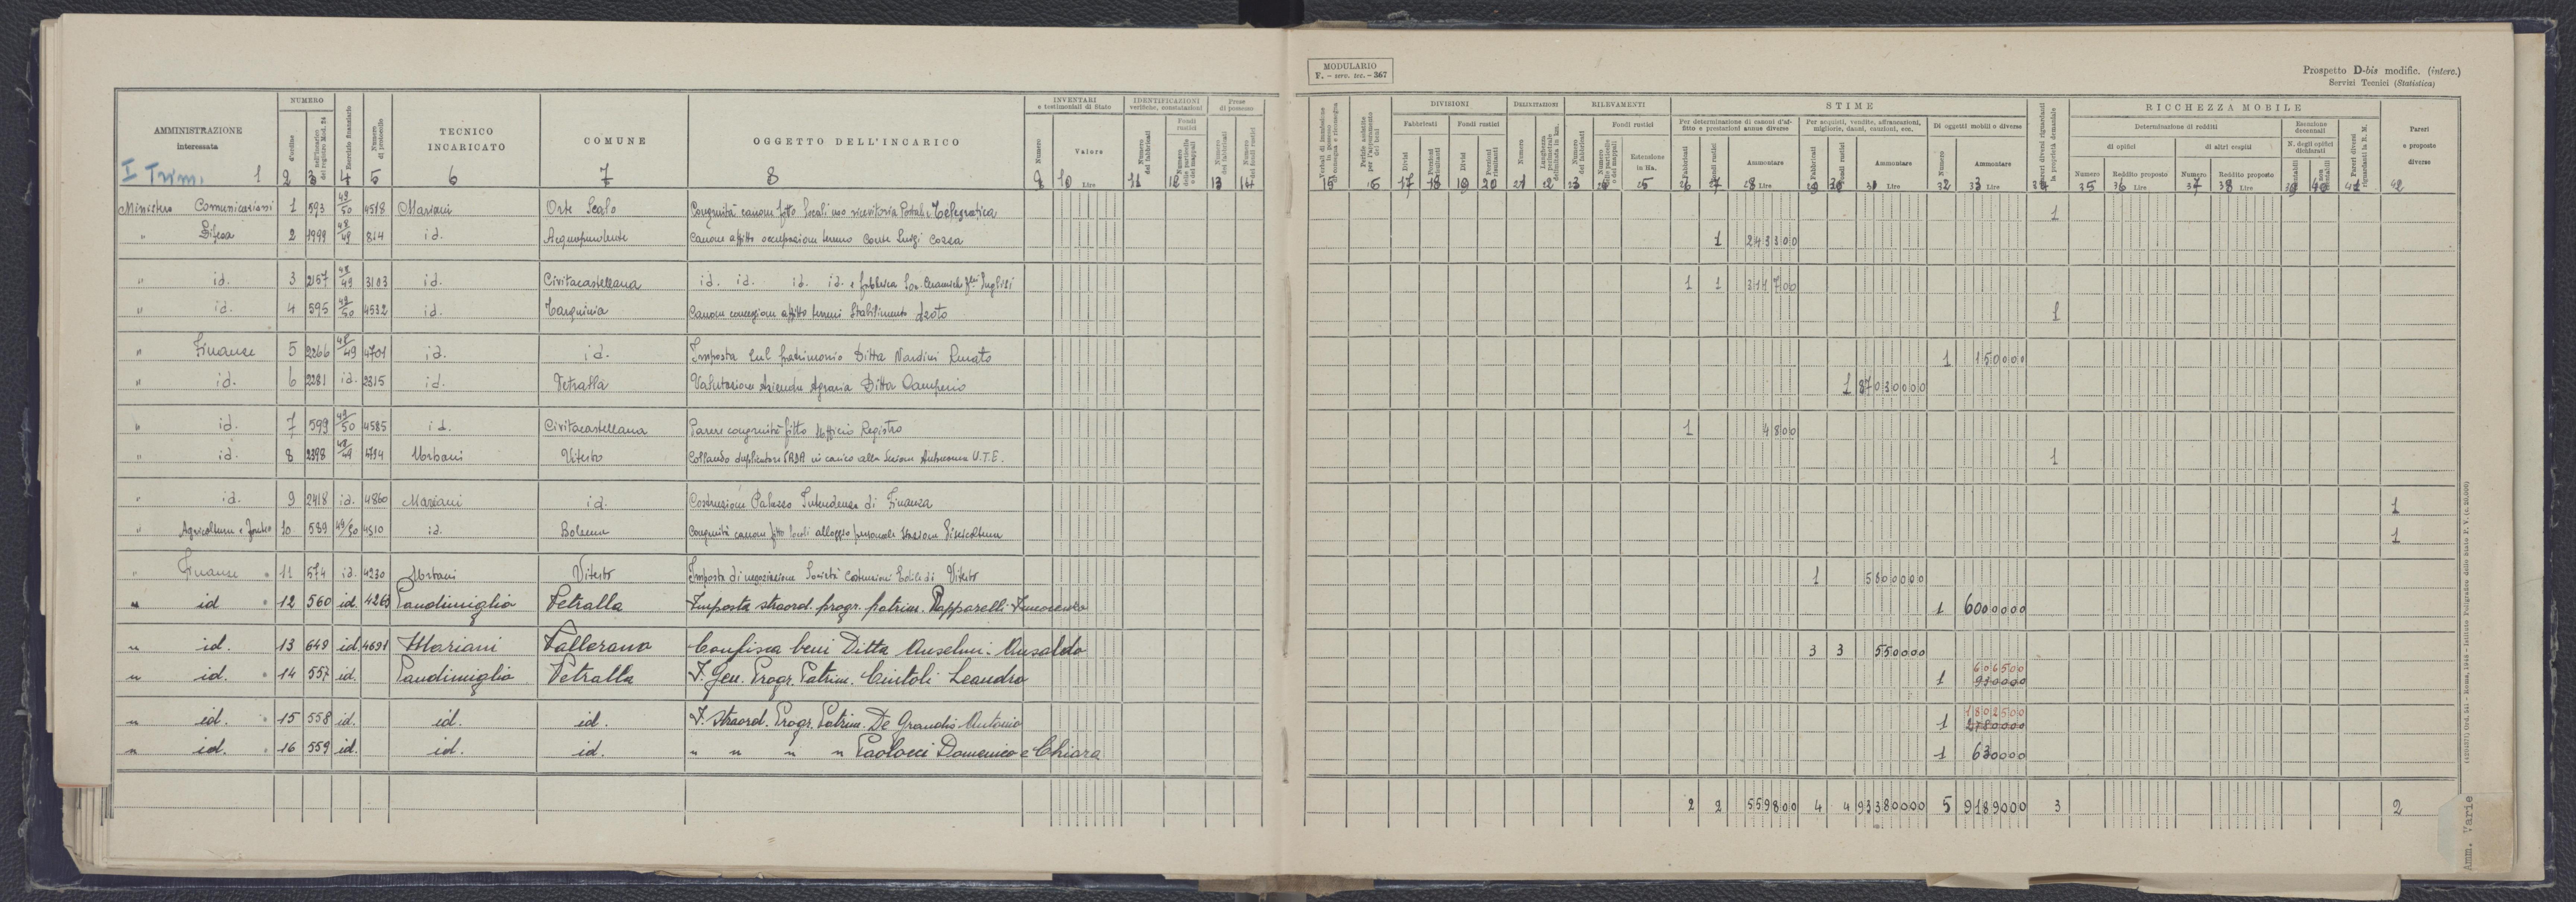 MODULARIO
F. - serv. tec. - 367
Prospetto D-bis modific. (interc.)
Servizi Tecnici (Statistica)
AMMINISTRAZIONE interessata
NUMERO
d'ordine
dell'incarico del registro Mod. 24
Esercizio finanziario
Numero di protocollo
TECNICO INCARICATO
COMUNE
OGGETTO DELL'INCARICO
INVENTARI e testimoniali di Stato
Numero
Valore
Lire
IDENTIFICAZIONI verifiche, constatazioni
Numero dei fabbricati
Fondi rustici
Numero delle particelle o dei mappali
Prese di possesso
Numero dei fabbricati
Numero dei fondi rustici
DIVISIONI
Fabbricati
Divisi
Porzioni risultanti
Fondi rustici
Divisi
Porzioni risultanti
DELIMITAZIONI
Numero
Lunghezza perimetrale delimitata in km.
RILEVAMENTI
Numero dei fabbricati
Fondi rustici
Numero delle particelle o dei mappali
Estensione in Ha.
STIME
Per determinazione di canoni d'affitto e prestazioni annue diverse
Fabbricati
Fondi rustici
Ammontare
Lire
Per acquisti, vendite, affrancazioni, migliorie, danni, cauzioni, ecc.
Fabbricati
Fondi rustici
Ammontare
Lire
Di oggetti mobili e diverse
Numero
Ammontare
Lire
Pareri diversi riguardanti la proprietà demaniale
RICCHEZZA MOBILE
Determinazione di redditi
di opifici
Numero
Reddito proposto
Lire
di altri cespiti
Numero
Reddito proposto
Lire
Esenzione decennali
N. degli opifici dichiarati
Pareri diversi riguardanti la R. M.
Pareri e proposte diverse
I Trim. 1 2 3 4 5 6 7 8 9 10 11 12 13 14 15 16 17 18 19 20 21 22 23 24 25 26 27 28 29 30 31 32 33 34 35 36 37 38 39 40 41 42
Ministero Comunicazioni 1 593 49/50 4518 Mariani Orte Scalo Congruità canone fitto locali uso ricevitoria Postale e Telegrafica 1
" Difesa 2 1999 48/49 814 id. Acquapendente Canone affitto occupazione terreno Conte Luigi Cozza 1 243300
" id. 3 2157 48/49 3103 id. Civitacastellana id. id. id. id. e fabbrica Soc. Ceramich 1 1 311700
" id. 4 595 49/50 4532 id. Tarquinia Canone concessione affitto terreni Stabilimento 1
" Finanze 5 2266 48/49 4701 id. id. Imposta sul patrimonio Ditta Nardini Renato 1 150000
" id. 6 2281 id. 2315 id. Vetralla Valutazione Azienda Agraria Ditta 1 87030000
" id. 7 599 49/50 4585 id. Civitacastellana Parere congruità fitto Ufficio Registro 1 4800
" id. 8 2398 48/49 4794 Urbani Viterbo Collaudo duplicatore in carico alla Sezione Autonoma U.T.E. 1
" id. 9 2418 id. 4860 Mariani id. Costruzione Palazzo Intendenza di Finanza 1
" Agricoltura e Foreste 10 589 49/50 4510 id. Bolsena Congruità canone fitto locali alloggio personale stazione Piscicoltura 1
" Finanze 11 574 id. 4230 Urbani Viterbo Imposta di negoziazione Società Costruzioni Edili di Viterbo 1 5800000
" id 12 560 id. 4263 Pandimiglio Vetralla Imposta straord. progr. patrim. Papparelli Innocenzo 1 6000000
" id. 13 649 id. 4691 Mariani Vallerano Confisca beni Ditta Anselmi Ansaldo 3 3 550000
" id. 14 557 id. Pandimiglio Vetralla I. Gen. Progr. Patrim. Cintoli Leandro 1 606500 930000
" id. 15 558 id. id. id. I. Straord. Progr. Patrim. De Grandis Antonio 1 1802500 2780000
" id. 16 559 id. id. id. " " " " Paolocci Domenico e Chiara 1 630000
2 2 559800 4 4 93380000 5 9189000 3 2
Amm. Varie